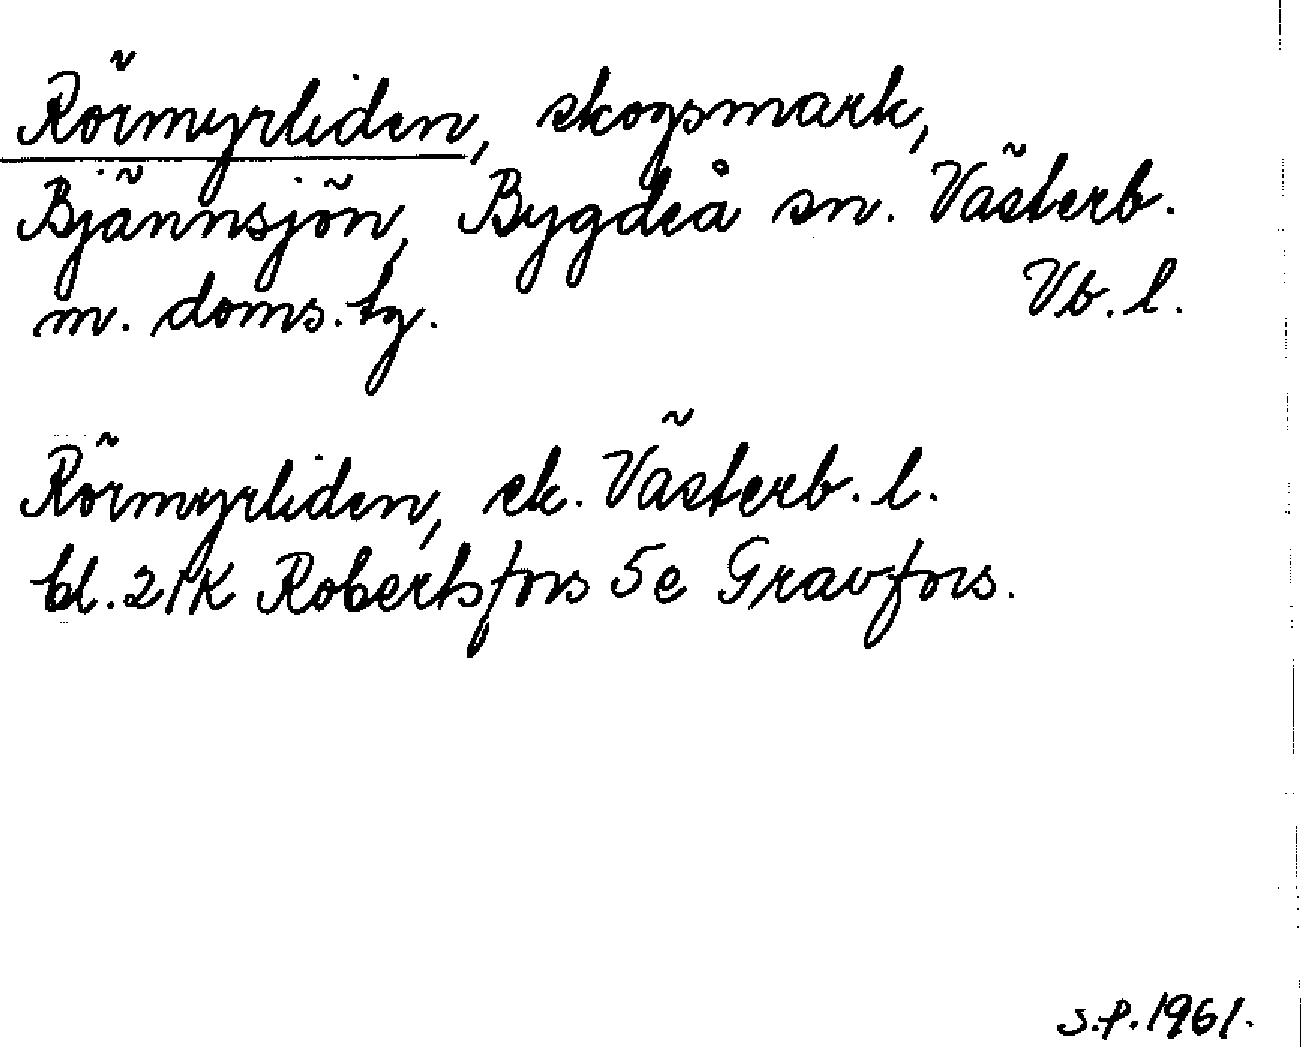 Rörmyrliden, skogsmark,
Bjännsjön, Bygdeå sn. Västerb.
m. doms. tg. Vb. l.
Rörmyrliden, ek. Västerb. l.
bl. 21K Robertsfors 5e Gravfors.
S.F. 1961.